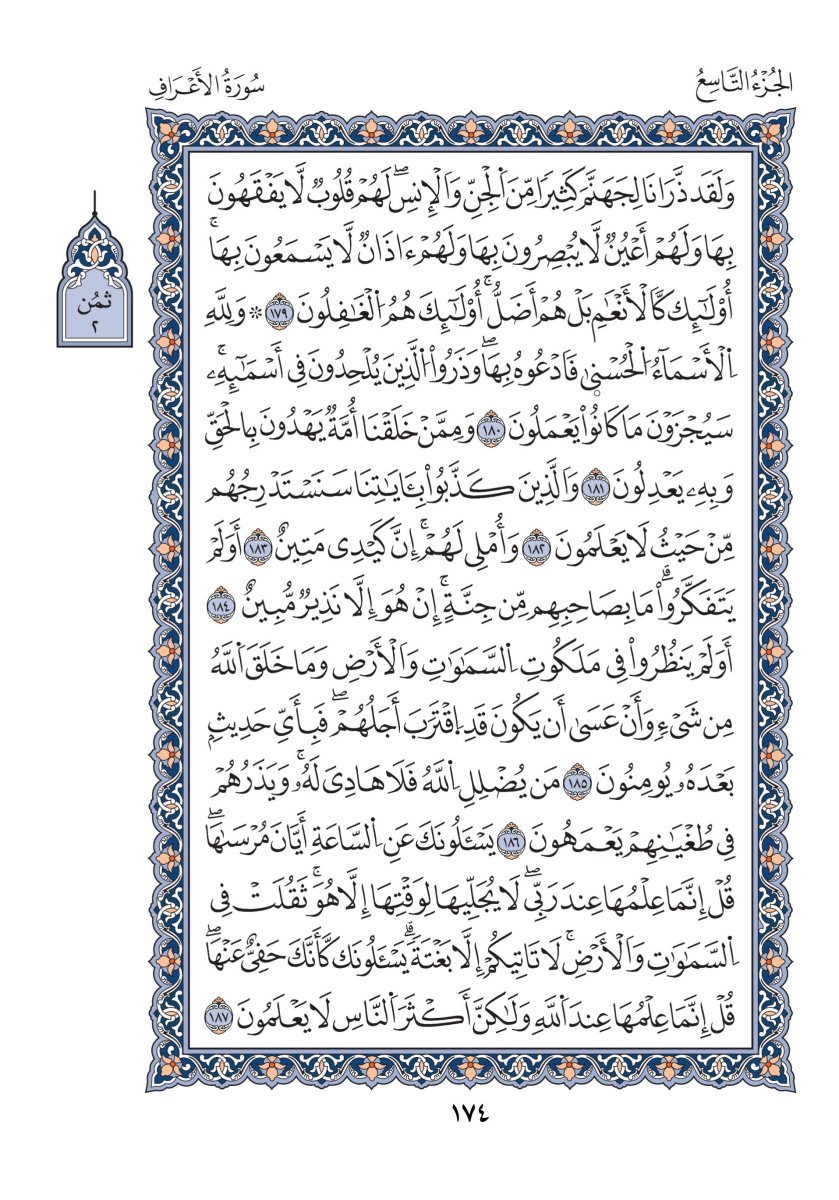 الجُزْءُ التَّاسِعُ
سُورَةُ الأَعْرَافِ
وَلَقَد ذَّرَانَا لِجَهَنَّم كَّثِيرًا مِّنَ اَ۬لْجِنِّ وَالْإِنسِۖ لَهُمْ قُلُوبٌ لَّا يَفْقَهُونَ
بِهَا وَلَهُمْ أَعْيُنٌ لَّا يُبْصِرُونَ بِهَا وَلَهُمْ ءَاذَانٌ لَّا يَسْمَعُونَ بِهَاۚ
أُوْلَٰٓئِك كَّالْأَنْعَٰمِ بَلْ هُمْ أَضَلُّۚ أُوْلَٰٓئِكَ هُمُ اُ۬لْغَٰفِلُونَ ١٧٩ ۞ وَلِلَّهِ
اِ۬لْأَسْمَآءُ اُ۬لْحُسْنۭىٰ فَادْعُوهُ بِهَاۖ وَذَرُواْ اُ۬لَّذِينَ يُلْحِدُونَ فِي أَسْمَٰٓئِهِۦۚ
سَيُجْزَوْنَ مَا كَانُواْ يَعْمَلُونَ ١٨٠ وَمِمَّنْ خَلَقْنَا أُمَّةٌ يَهْدُونَ بِالْحَقِّ
وَبِهِۦ يَعْدِلُونَ ١٨١ وَالَّذِينَ كَذَّبُواْ بِـَٔايَٰتِنَا سَنَسْتَدْرِجُهُم
مِّنْ حَيْثُ لَا يَعْلَمُونَ ١٨٢ وَأُمْلِي لَهُمْۚ إِنَّ كَيْدِي مَتِينٌ ١٨٣ أَوَلَمْ
يَتَفَكَّرُواْۗ مَا بِصَاحِبِهِم مِّن جِنَّةٍۚ إِنْ هُوَ إِلَّا نَذِيرٌ مُّبِينٌ ١٨٤
أَوَلَمْ يَنظُرُواْ فِي مَلَكُوتِ اِ۬لسَّمَٰوَٰتِ وَالْأَرْضِ وَمَا خَلَقَ اَ۬للَّهُ
مِن شَيْءٍ وَأَنْ عَسَىٰ أَن يَكُونَ قَدِ اِ۪قْتَرَبَ أَجَلُهُمْۖ فَبِأَيِّ حَدِيثٍ
بَعْدَهُۥ يُومِنُونَ ١٨٥ مَن يُضْلِلِ اِ۬للَّهُ فَلَا هَادِيَ لَهُۥۚ وَيَذَرُهُمْ
فِي طُغْيَٰنِهِمْ يَعْمَهُونَ ١٨٦ يَسْـَٔلُونَكَ عَنِ اِ۬لسَّاعَةِ أَيَّانَ مُرْسَىٰهَاۖ
قُلْ إِنَّمَا عِلْمُهَا عِندَ رَبِّيۖ لَا يُجَلِّيهَا لِوَقْتِهَا إِلَّا هُوَۚ ثَقُلَتْ فِي
اِ۬لسَّمَٰوَٰتِ وَالْأَرْضِۚ لَا تَاتِيكُمْ إِلَّا بَغْتَةٗۗ يَسْـَٔلُونَك كَّأَنَّكَ حَفِيٌّ عَنْهَاۖ
قُلْ إِنَّمَا عِلْمُهَا عِندَ اَ۬للَّهِ وَلَٰكِنَّ أَكْثَرَ اَ۬لنَّاسِ لَا يَعْلَمُونَ ١٨٧
ثُمُن
٢
١٧٤